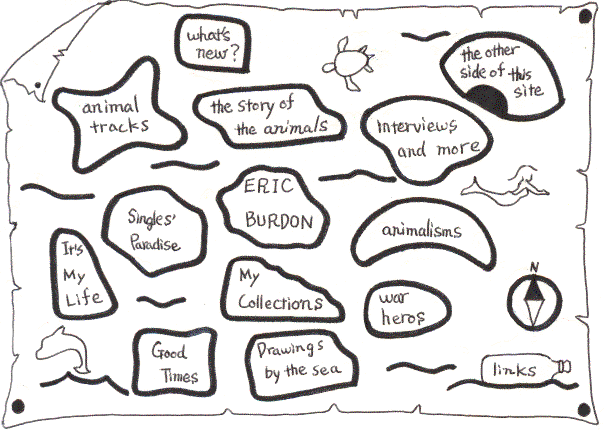 what's
new?
the other
side of this
site
animal
tracks
the story of
the animals
Interviews
and more
ERIC
BURDON
Singles'
Paradise
animalisms
It's
My
Life
My
Collections
war
heros
N
Good
Times
Drawings
by the sea
links